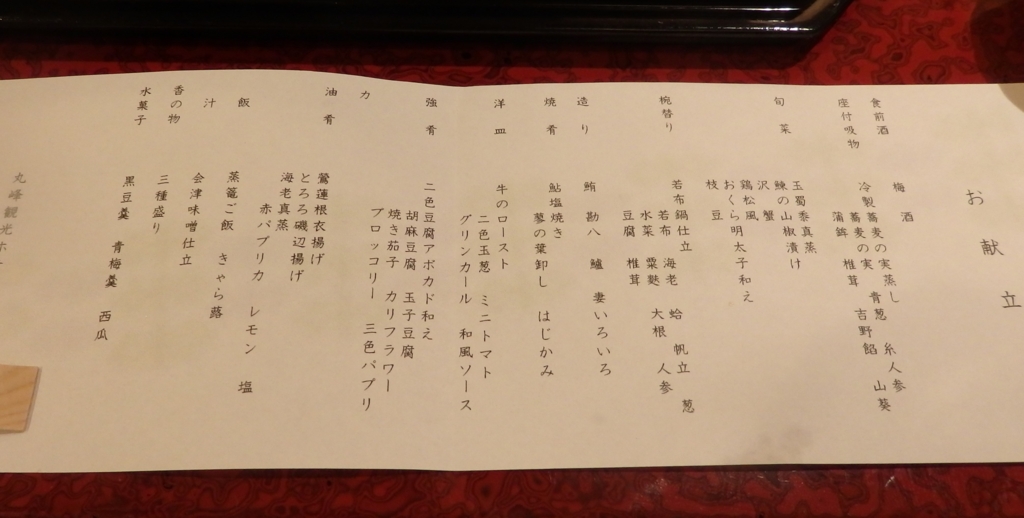 お献立
食前酒 梅酒
座付吸物 冷製蕎麦の実蒸し 青葱 糸人参
蕎麦の実 椎茸 吉野餡 山葵
蒲鉾
旬菜 玉蜀黍真蒸
鰊の山椒漬け
沢蟹
鶏松風
おくら明太子和え
枝豆
椀替り 若布鍋仕立 蛤 帆立 葱
若布 海老
水菜 粟麩 大根 人参
豆腐 椎茸
造り 鮪 勘八 鱸 妻いろいろ
焼肴 鮎塩焼き
蓼の葉卸し はじかみ
洋皿 牛のロースト
二色玉葱 ミニトマト
グリンカール 和風ソース
強肴 二色豆腐アボカド和え
胡麻豆腐 玉子豆腐
焼き茄子 カリフラワー
ブロッコリー 三色パプリ
カ
油肴 鶯蓮根衣揚げ
とろろ磯辺揚げ
海老真蒸
赤パプリカ レモン 塩
飯 蒸篭ご飯 きゃら蕗
汁 会津味噌仕立
香の物 三種盛り
水菓子 黒豆羹 青梅羹 西瓜
丸峰観光ホ